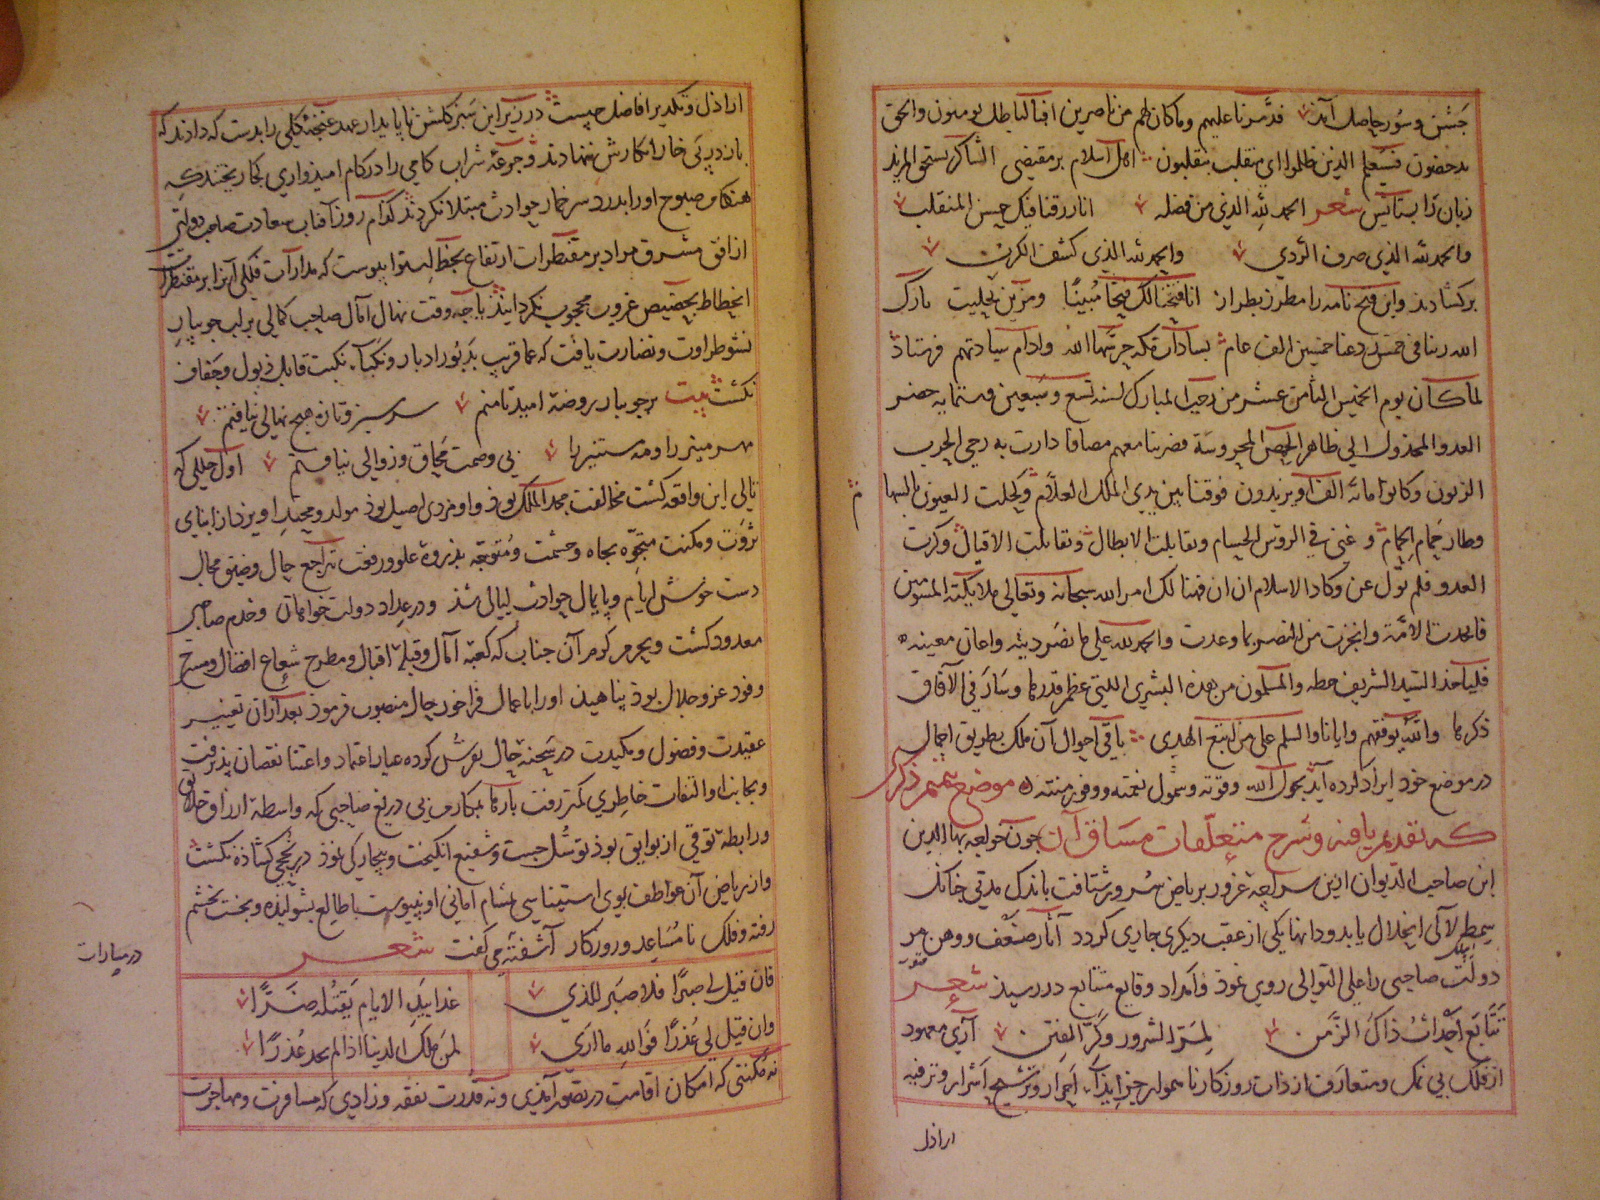 جشن و سور حاصل آمد فدمرنا علیهم وما کان لهم من ناصرین افبالباطل یومنون والحق
یدحضون فسیعلم الذین ظلموا ای منقلب ینقلبون اهل اسلام بر مقتضی الشاکر یستحق المزید
زبان را بستایس شعر الحمد لله الذی من فضله انا رزقنا فیک حسن المنقلب
والحمد لله الذی صرف الردی والحمد لله الذی کشف الکرب
برکشادند واین فتح نامه را مطرز بطراز انا فتحنا لک فتحا مبینا ومزین بحلیت بارک
الله ربنا فی خمس دعنا خمسین الف عام بسادات مکه حرسها الله وادام سیادتهم فرستاد
لما کان یوم الخمیس الثامن عشر من رجب المبارک لسنه تسع وسبعین وستمایه حضر
العدو المخذول الی ظاهر الحمص المحروسة فضربنا معهم مصافا دارت به رحی الحرب
الزبون وکانوا مائه الف او یزیدون فوقفنا بین یدی الملک العلام وکحلت العیون بالسها
وطار حمام الحمام وغنی فی الروس الحسام وتقابلت الابطال وتقاتلت الاقیال وکرت
العدو فلم نول عن وکاد الاسلام ان ان فهنالک امر الله سبحانه وتعالی ملایکته المسومین
فانجدت الامة وانجزت من النصر بما وعدت والحمد لله علی ما نصر دینه واعان معینه
فلیاخذ السید الشریف حظه والمسلمون من هذه البشری اللتی عظم قدرها وسار فی الآفاق
ذکرها والله یوفقهم وایانا والسلم علی من اتبع الهدی باقی احوال آن ملک بطریق اجمال
در موضع خود ایراد کرده آید بحول الله وقوته وشمول نعمته ووفور منته موضع تتمیم ذکری
که تقدیم یافته وشرح متعلقات مساق آن چون خواجه بها الدین
ابن صاحب الدیوان ازین سراچه غرور بریاض سرور شتافت باندک مدتی چنانک
سمط لآلی انحلال یابد ودانها یکی از عقب دیکری جاری کردد آثار ضعف ووهن بر
دولت صاحبی را علی التوالی روی نمود وامداد وقایع متتابع در رسید شعر
تتابع احداث ذاک الزمن لمر الشرور وکر الفتن آری معهود
از فلک بی نمک ومتعارف از ذات روزکار نا همواره جز ایذآء احرار وترشیح اشرار وترفیه
اراذل
اراذل وتکدیر افاضل چیست در زیر این سبز کلشن نا پایدار عهد غنجه کلی را بدست که دادند که
باز در پی خار انکارش ننهادند وجرعه شراب کامی را در کام امیدواری بکار ریختند که
هنکام صبوح اورا بدرد سر خمار حوادث مبتلا نکردند کدام روز آفتاب سعادت صاحب دولتی
از افق مشرق مراد بر مقنطرات ارتفاع بخط استوا پیوست که مدارات فلکی آنرا بر مقنطرات
انحطاط بحضیض غروب محجوب نکردانید یا چه وقت نهال آمال صاحب کمالی بر لب جویبار
نشو طراوت ونضارت یافت که عما قریب بدبور ادبار ونکبآء نکبت قابل ذبول وجفاف
نکشت بیت بر جویبار روضه امید تا منم سر سبز وتازه هیچ نهالی نیافتم
مهر منیر را ومه مستنیر را بی وصمت محاق وزوالی نیافتم اول خللی که
تالی این واقعه کشت مخالفت مجد الملک بود واو مردی اصیل بود مولد ومحتد او یزد از ابنای
ثروت ومکنت متجوه بجاه وحشمت ومتوجه بذروه علو ورفعت تراجع حال وضیق مجال
دست خوش ایام وپایمال حوادث لیالی شد ودر عداد دولت خواهان وخدم صاحبی
معدود کشت وبحرم کرم آن جناب که کعبه آمال وقبله اقبال ومطرح شعاع افضال ومسرح
وفود عز وجلال بود پناهید اورا باعمال فراخور حال منصوب فرمود بعد ازان تغییر
عقیدت وفضول ومکیدت در سحنه حال تفرس کرده عیار اعتماد واعتنا نقصان پذیرفت
وبجانب او التفات خاطری کمتر رفت بارها بمکارم بی دریغ صاحبی که واسطه ارزاق خلایق
ورابطه توقی از بوایق بود توسل جست وشفیع انکیخت وبیچارکی نمود در نجحی کشاده نکشت
واز ریاض آن عواطف بوی استیناسی بمشام امانی او نپیوست با طالع شولیده وبخت بخشم
رفته وفلک نا مساعد وروزکار آشفته می کفت شعر
فان قیل لی صبرا فلا صبر للذی غدا بید الایام یقتله صبرا
وان قیل لی عذرا فوالله ما اری لمن ملک الدنیا اذا لم یجد عذرا
نه مکنتی که امکان اقامت در تصور آمدی ونه قدرت نفقه وزادی که مسافرت ومهاجرت